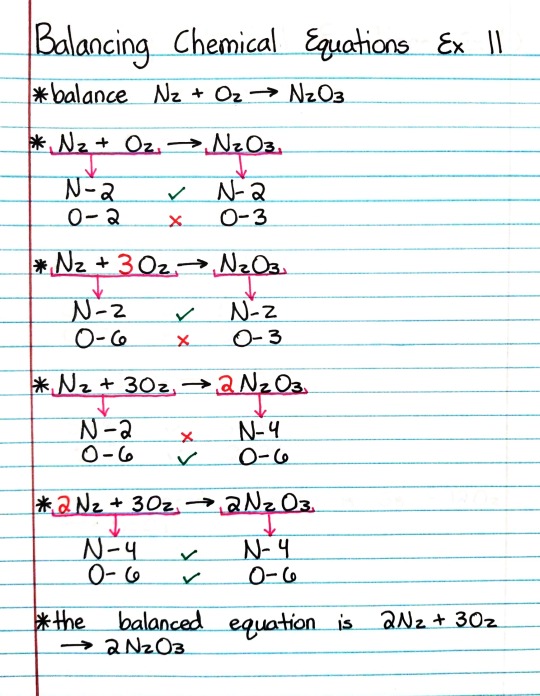 Balancing Chemical Equations Ex 11
*balance N2 + O2 → N2O3
* N2 + O2 → N2O3
N-2 ✓ N-2
O-2 × O-3
* N2 + 3O2 → N2O3
N-2 ✓ N-2
O-6 × O-3
* N2 + 3O2 → 2N2O3
N-2 × N-4
O-6 ✓ O-6
* 2N2 + 3O2 → 2N2O3
N-4 ✓ N-4
O-6 ✓ O-6
*the balanced equation is 2N2 + 3O2
→ 2N2O3